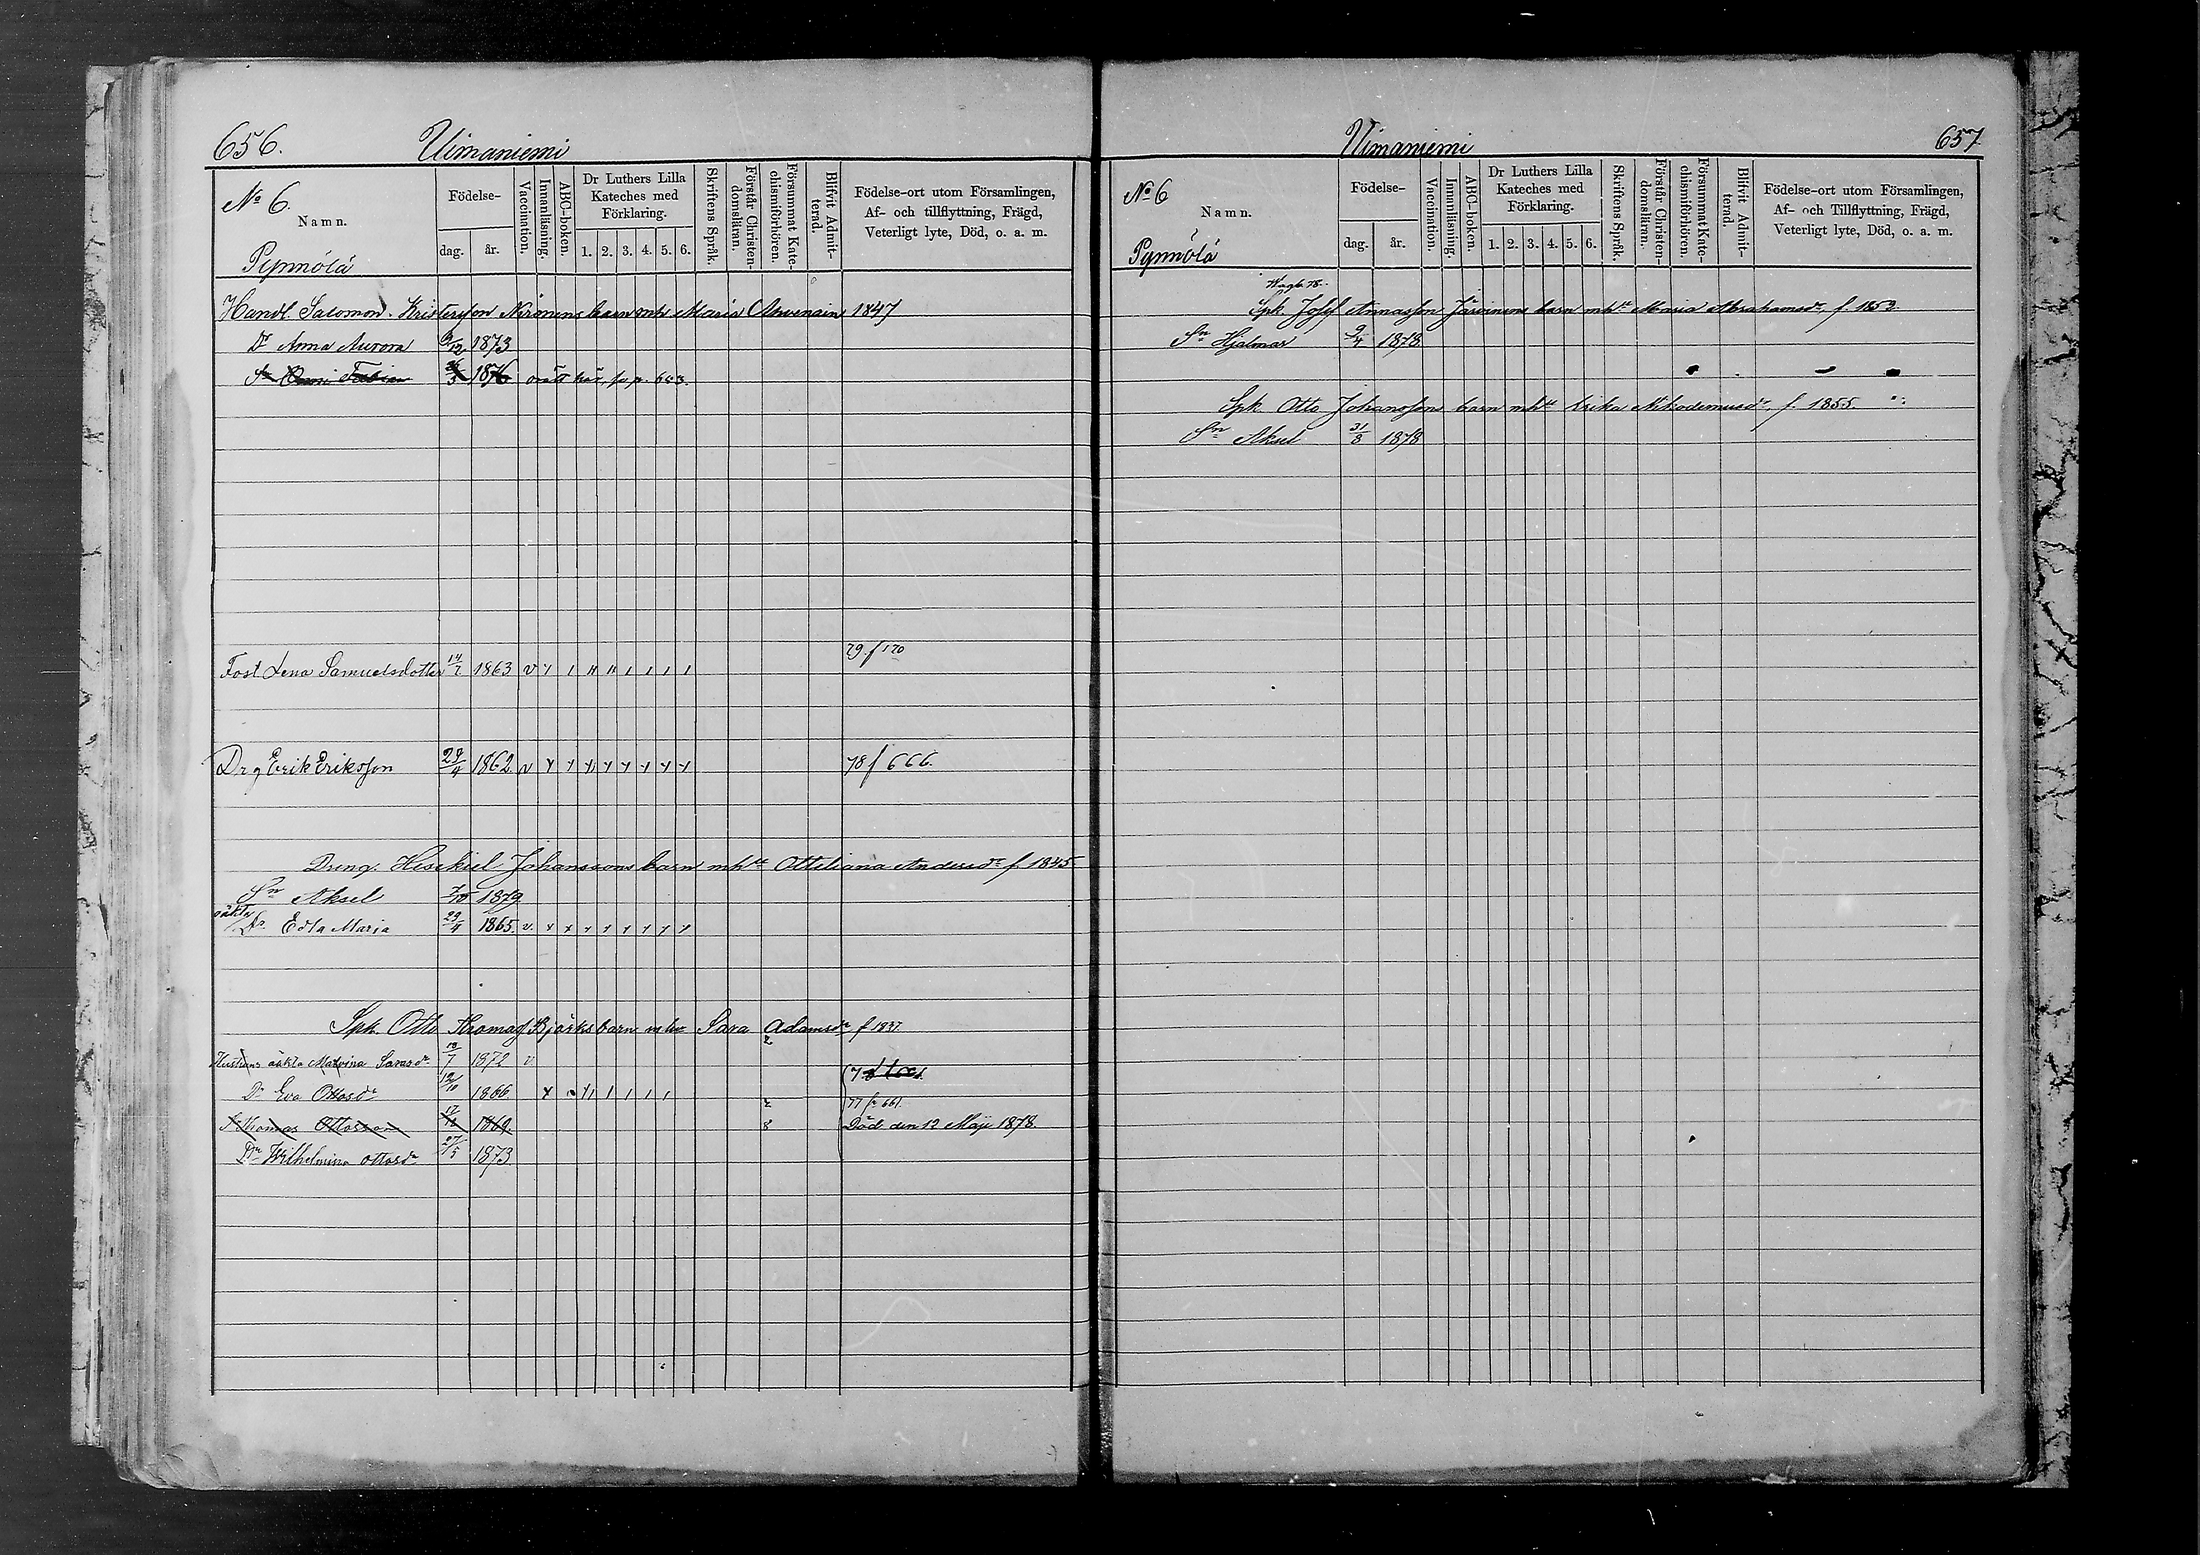 656. Uimaniemi
No 6.
Namn.
Pynnölä
Födelse-
dag. år.
Vaccination.
Innanläsning.
ABC-boken.
Dr Luthers Lilla
Kateches med
Förklaring.
1. 2. 3. 4. 5. 6.
Skriftens Språk.
Förstår Christen-
domsläran.
Försummat Kate-
chismiförhören.
Blifvit Admit-
terad.
Födelse-ort utom Församlingen,
Af- och tillflyttning, Frägd,
Veterligt lyte, Död, o. a. m.
Handl. Salomon Kristersson Nironens barn mh Maria Ahvenain 1847
Dr Anna Aurora /12 1873
Sn Fabian 1876 orätt här, p. 653.
79 f 170
Fost Lena Samuelsdotter 14/7 1863 v
Drg Erik Eriksson 29/4 1862 v 78 f 666.
Dreng. Hesekiel Johanssons barn mhu Ottiliana Andersdr f. 1845
Sn Aksel 7/10 1879
oäkta Dr Edla Maria 29/4 1865. v.
Spk. Otto Thomasf Björks barn mhu Sara Adamsdr f 1837
Hustruns oäkta Malvina Sarasdr 18/7 1872 v
Dr Eva Ottosdr 12/10 1866
77 f 661
Sn Thomas Ottosson 17/12 1869. Död den 12 Maji 1878.
Dr Wilhelmina Ottosdr 27/5 1873
Uimaniemi 657
No 6
Namn.
Pynnölä
Födelse-
dag. år.
Vaccination.
Innanläsning.
ABC-boken.
Dr Luthers Lilla
Kateches med
Förklaring.
1. 2. 3. 4. 5. 6.
Skriftens Språk.
Förstår Christen-
domsläran.
Försummat Kate-
chismiförhören.
Blifvit Admit-
terad.
Födelse-ort utom Församlingen,
Af- och Tillflyttning, Frägd,
Veterligt lyte, Död, o. a. m.
Spk. Josef Annasson Järvinens barn mhu Maria Abrahamsdr, f. 1853.
Sn Hjalmar 9/4 1878
Spk. Otto Johanssons barn mhu Erika Nikodemusdr, f. 1855.
Sn Aksel 31/8 1878